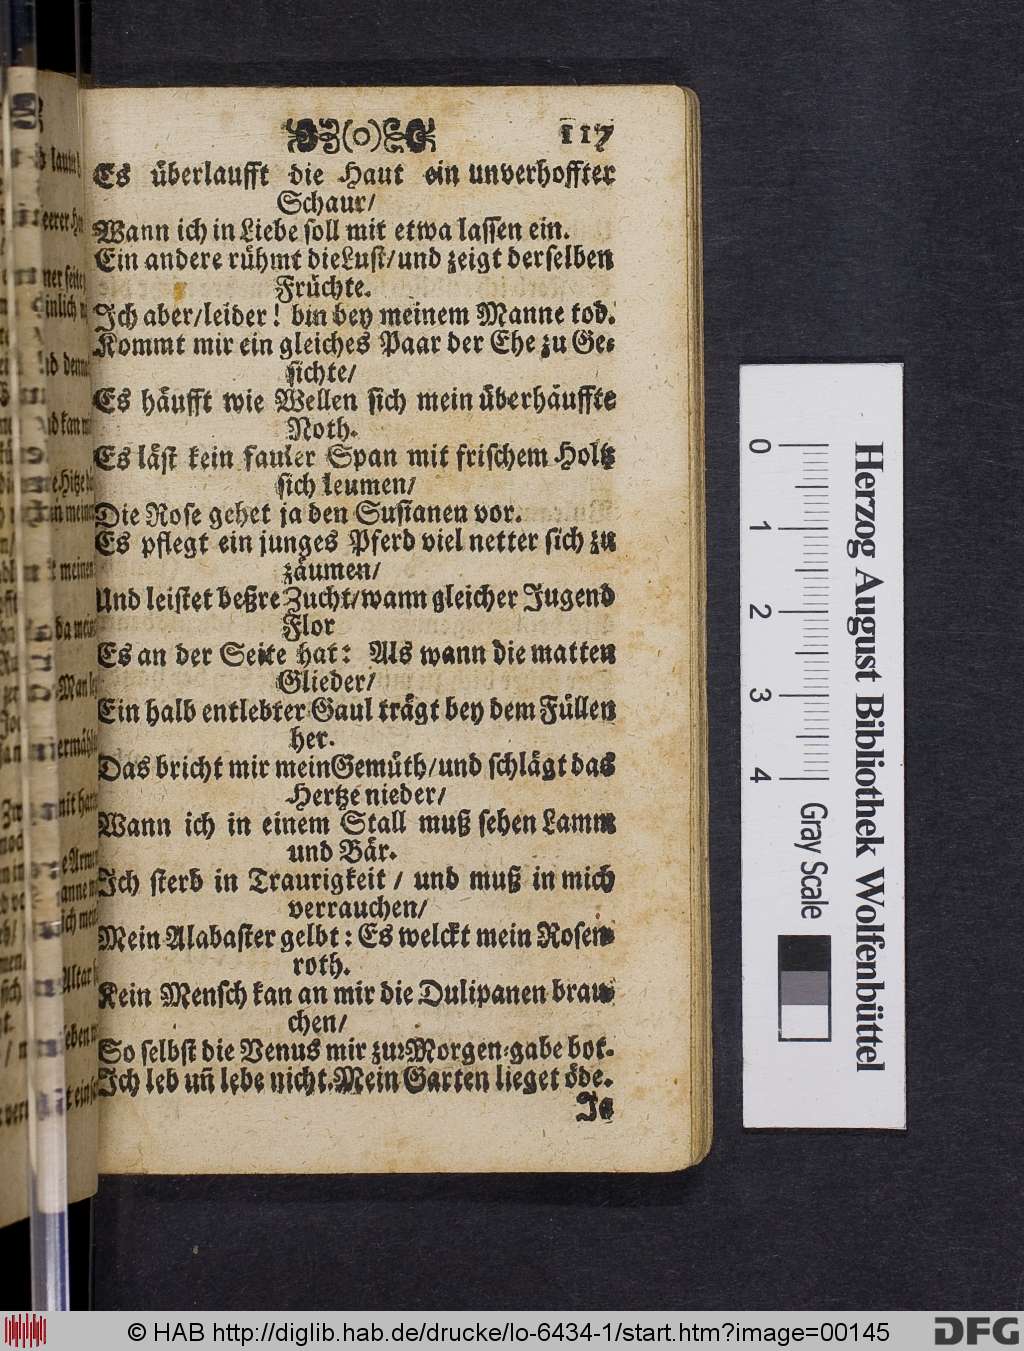 (o) 117
Es überlaufft die Haut ein unverhoffter
Schaur/
Wann ich in Liebe soll mit etwa lassen ein.
Ein andere rühmt die Lust/und zeigt derselben
Früchte.
Ich aber/leider! bin bey meinem Manne tod.
Kommt mir ein gleiches Paar der Ehe zu Ge-
sichte/
Es häufft wie Wellen sich mein überhäuffte
Noth.
Es läst kein fauler Span mit frischem Holtz
sich leumen/
Die Rose gehet ja den Susianen vor.
Es pflegt ein junges Pferd viel netter sich zu
zäumen/
Und leistet beßre Zucht/wann gleicher Jugend
Flor
Es an der Seite hat: Als wann die matten
Glieder/
Ein halb entlebter Gaul trägt bey dem Füllen
her.
Das bricht mir mein Gemüth/und schlägt das
Hertze nieder/
Wann ich in einem Stall muß sehen Lamm
und Bär.
Ich sterb in Traurigkeit / und muß in mich
verrauchen/
Mein Alabaster gelbt: Es welckt mein Rosen-
roth.
Kein Mensch kan an mir die Dulipanen brau-
chen/
So selbst die Venus mir zur Morgen-gabe bot.
Ich leb uñ lebe nicht. Mein Garten lieget öde.
Je
Herzog August Bibliothek Wolfenbüttel
0 1 2 3 4 Gray Scale
© HAB http://diglib.hab.de/drucke/lo-6434-1/start.htm?image=00145
DFG